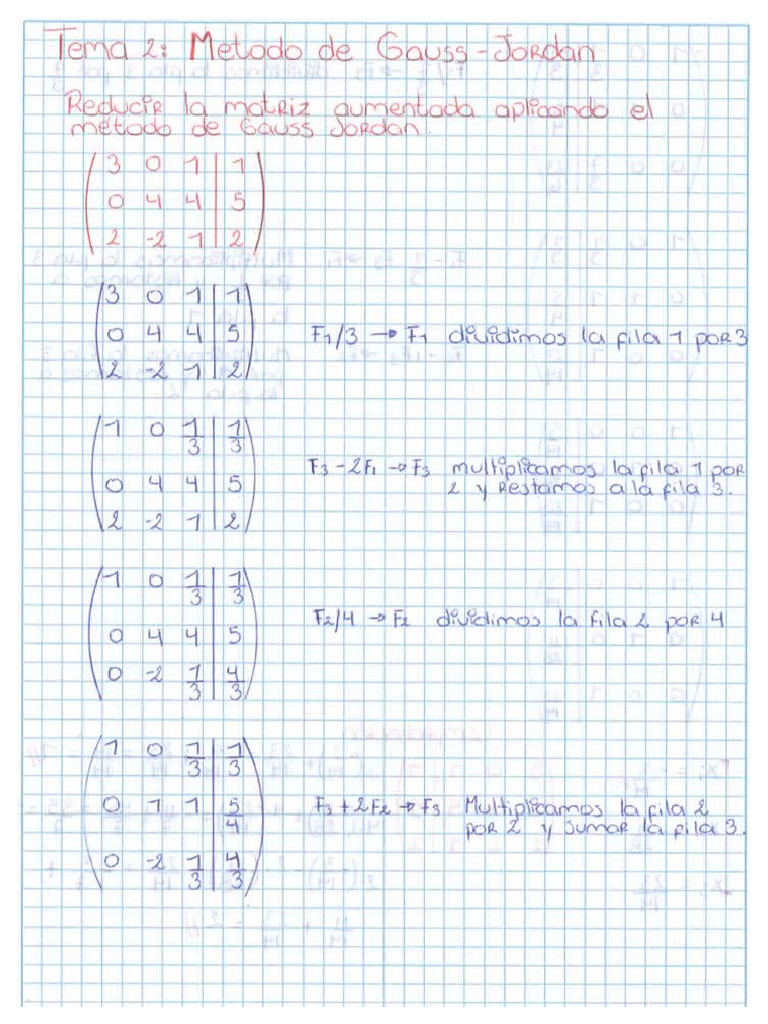 Tema 2: Metodo de Gauss-Jordan
Reducir la matriz aumentada aplicando el
método de Gauss Jordan.
3 0 1 | 1
0 4 4 | 5
2 -2 1 | 2
3 0 1 | 1
0 4 4 | 5 F1/3 → F1 dividimos la fila 1 por 3
2 -2 1 | 2
1 0 1/3 | 1/3
0 4 4 | 5 F3 - 2F1 → F3 multiplicamos la fila 1 por
2 y restamos a la fila 3.
2 -2 1 | 2
1 0 1/3 | 1/3
F2/4 → F2 dividimos la fila 2 por 4
0 4 4 | 5
0 -2 1/3 | 4/3
1 0 1/3 | 1/3
0 1 1 | 5/4 F3 + 2F2 → F3 Multiplicamos la fila 2
por 2 y sumar la fila 3.
0 -2 1/3 | 4/3